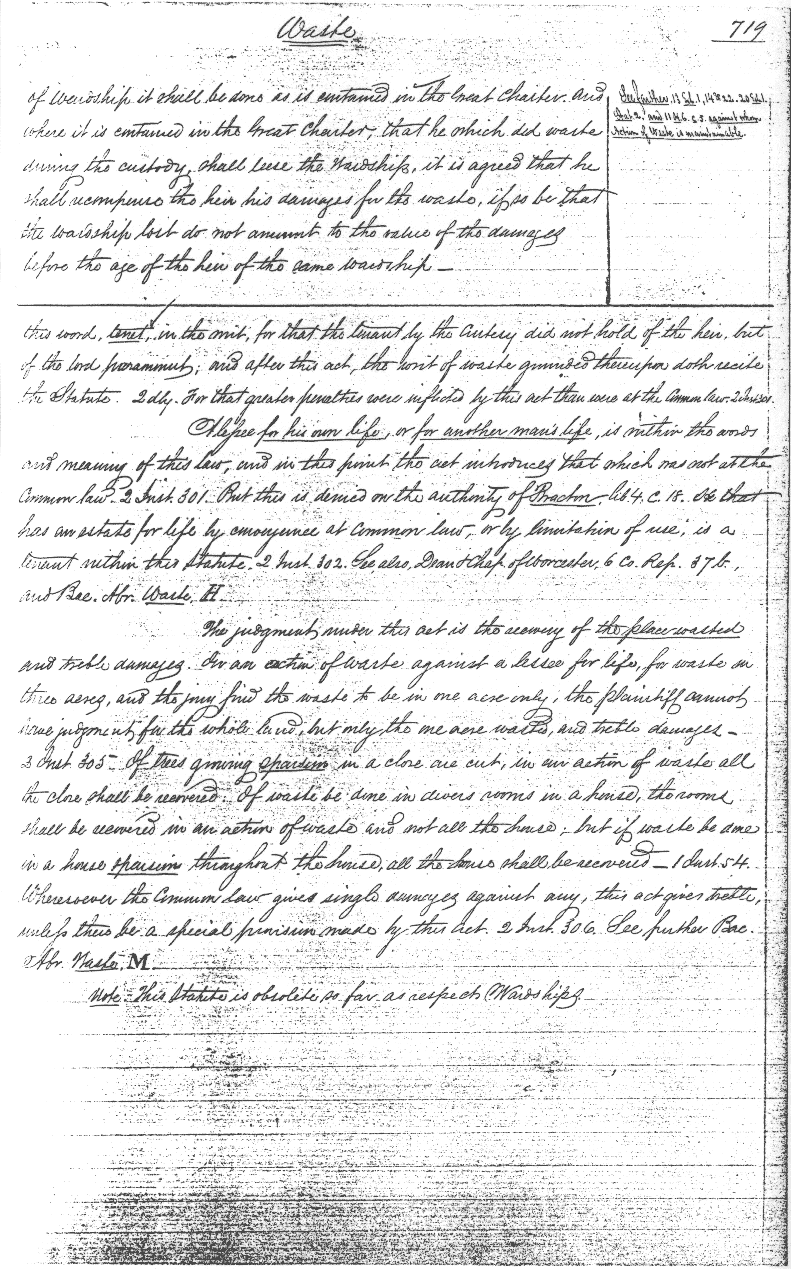 Waste
719
of Wardship it shall be done as is contained in the Great Charter. And
where it is contained in the Great Charter, that he which did waste
during the custody, shall leese the Wardship, it is agreed that he
shall recompense the heir his damages for the waste, if so be that
the wardship lost do not amount to the value of the damages
before the age of the heir of the same wardship —
See further, 13 Ed. 1, 14 & 22. 20 Ed. 1.
Stat. 2, and 11 H. 6. c. 5. against whom
Action of Waste is maintainable.
this word, tenet, in the writ, for that the tenant by the Curtesy did not hold of the heir, but
of the lord paramount; and after this act, the writ of waste grounded thereupon doth recite
the Statute. 2dly. For that greater penalties were inflicted by this act than were at the Common law. 2 Inst. 301.
A lessee for his own life, or for another man's life, is within the words
and meaning of this law, and in this point the act introduces that which was not at the
Common law. 2 Inst. 301. But this is denied on the authority of Bracton, lib 4. c. 18. He that
has an estate for life by conveyance at Common law, or by limitation of use, is a
tenant within this Statute. 2 Inst. 302. See also, Dean & Chap. of Worcester, 6 Co. Rep. 37 b.,
and Bac. Abr. Waste, H.
The judgment under this act is the recovery of the place wasted
and treble damages. In an action of Waste against a lessee for life, for waste in
three acres, and the jury find the waste to be in one acre only, the plaintiff cannot
have judgment for the whole land, but only the one acre wasted, and treble damages –
2 Inst. 303 – If trees growing sparsim in a close are cut, in an action of waste all
the close shall be recovered. If waste be done in divers rooms in a house, the rooms
shall be recovered in an action of waste and not all the house; but if waste be done
in a house sparsim throughout the house, all the house shall be recovered – 1 Inst. 54.
Wheresoever the Common law gives single damages against any, this act gives treble,
unless there be a special provision made by this act. 2 Inst. 306. See further Bac.
Abr. Waste, M.
Note – This Statute is obsolete so far as respects Wardships